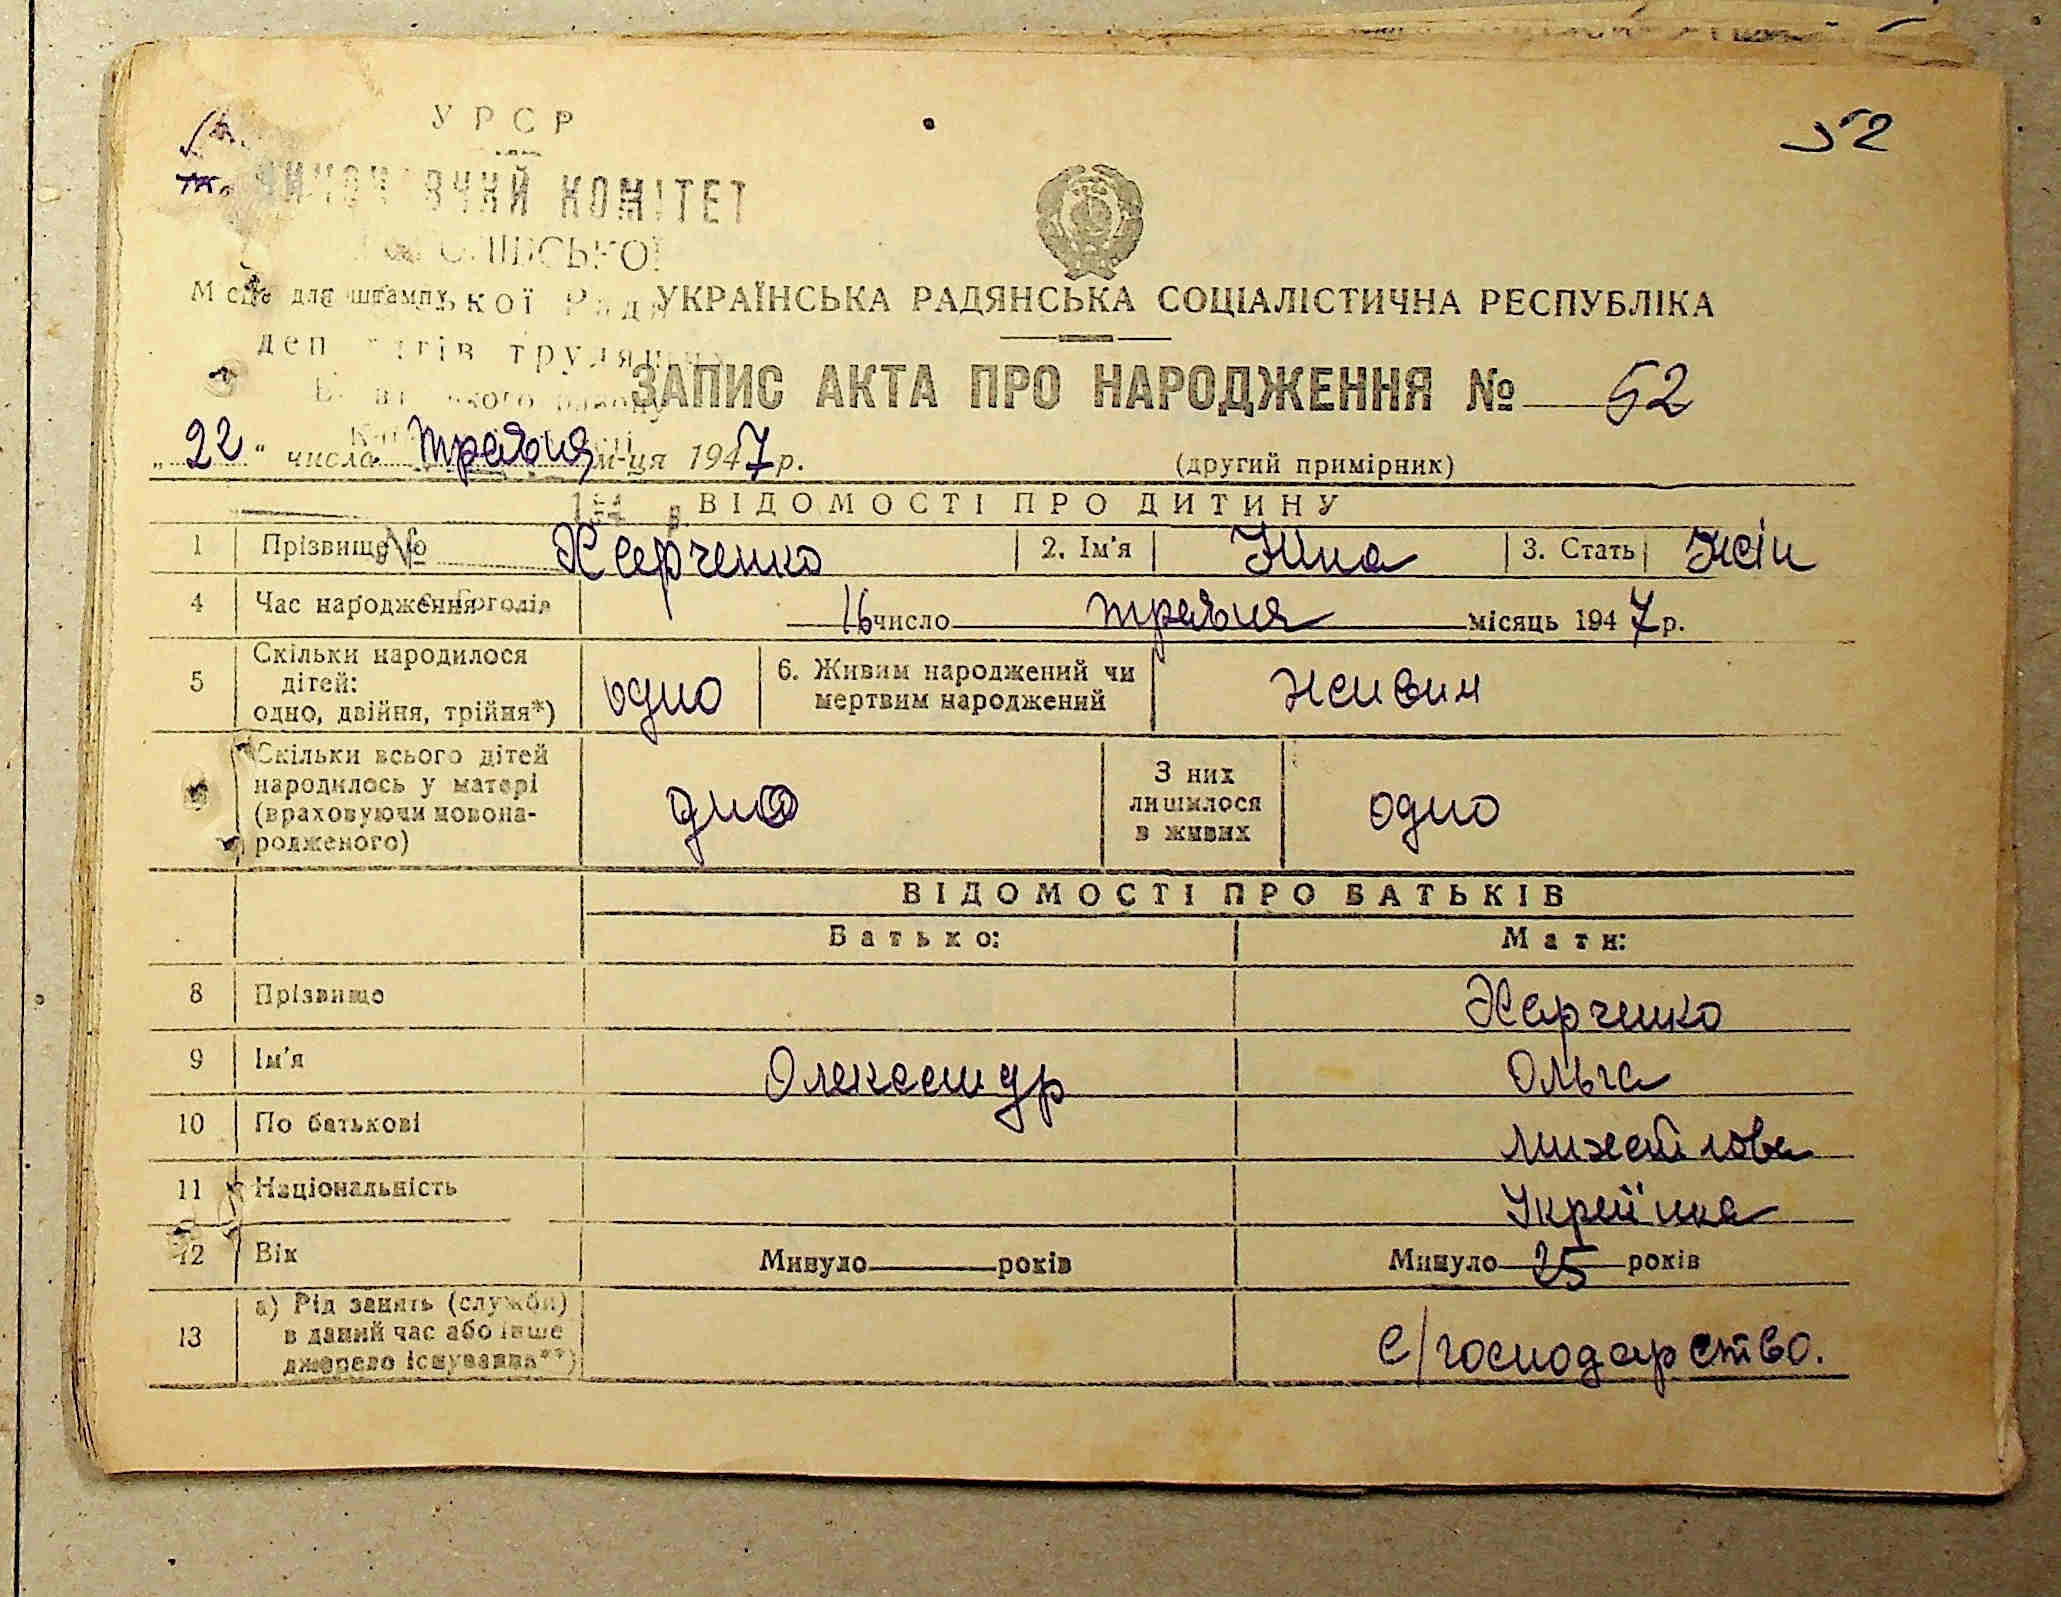 52
УРСР
КОМІТЕТ
Місце для штампу
УКРАЇНСЬКА РАДЯНСЬКА СОЦІАЛІСТИЧНА РЕСПУБЛІКА
ЗАПИС АКТА ПРО НАРОДЖЕННЯ № 52
„22“ числа травня м-ця 1947 р.
(другий примірник)
ВІДОМОСТІ ПРО ДИТИНУ
1 Прізвище Харченко 2. Ім'я Ніна 3. Стать жін
4 Час народження 16 число травня місяць 1947 р.
5 Скільки народилося дітей: одно, двійня, трійня*) одно 6. Живим народжений чи мертвим народжений живим
Скільки всього дітей народилось у матері (враховуючи новонародженого) дно З них лишилося в живих одно
ВІДОМОСТІ ПРО БАТЬКІВ
Батько: Мати:
8 Прізвище Харченко
9 Ім'я Олександр Ольга
10 По батькові Михайлова
11 Національність Українка
12 Вік Минуло років Минуло 25 років
13 а) Рід занять (служби) в даний час або інше джерело існування**) С/господарство.